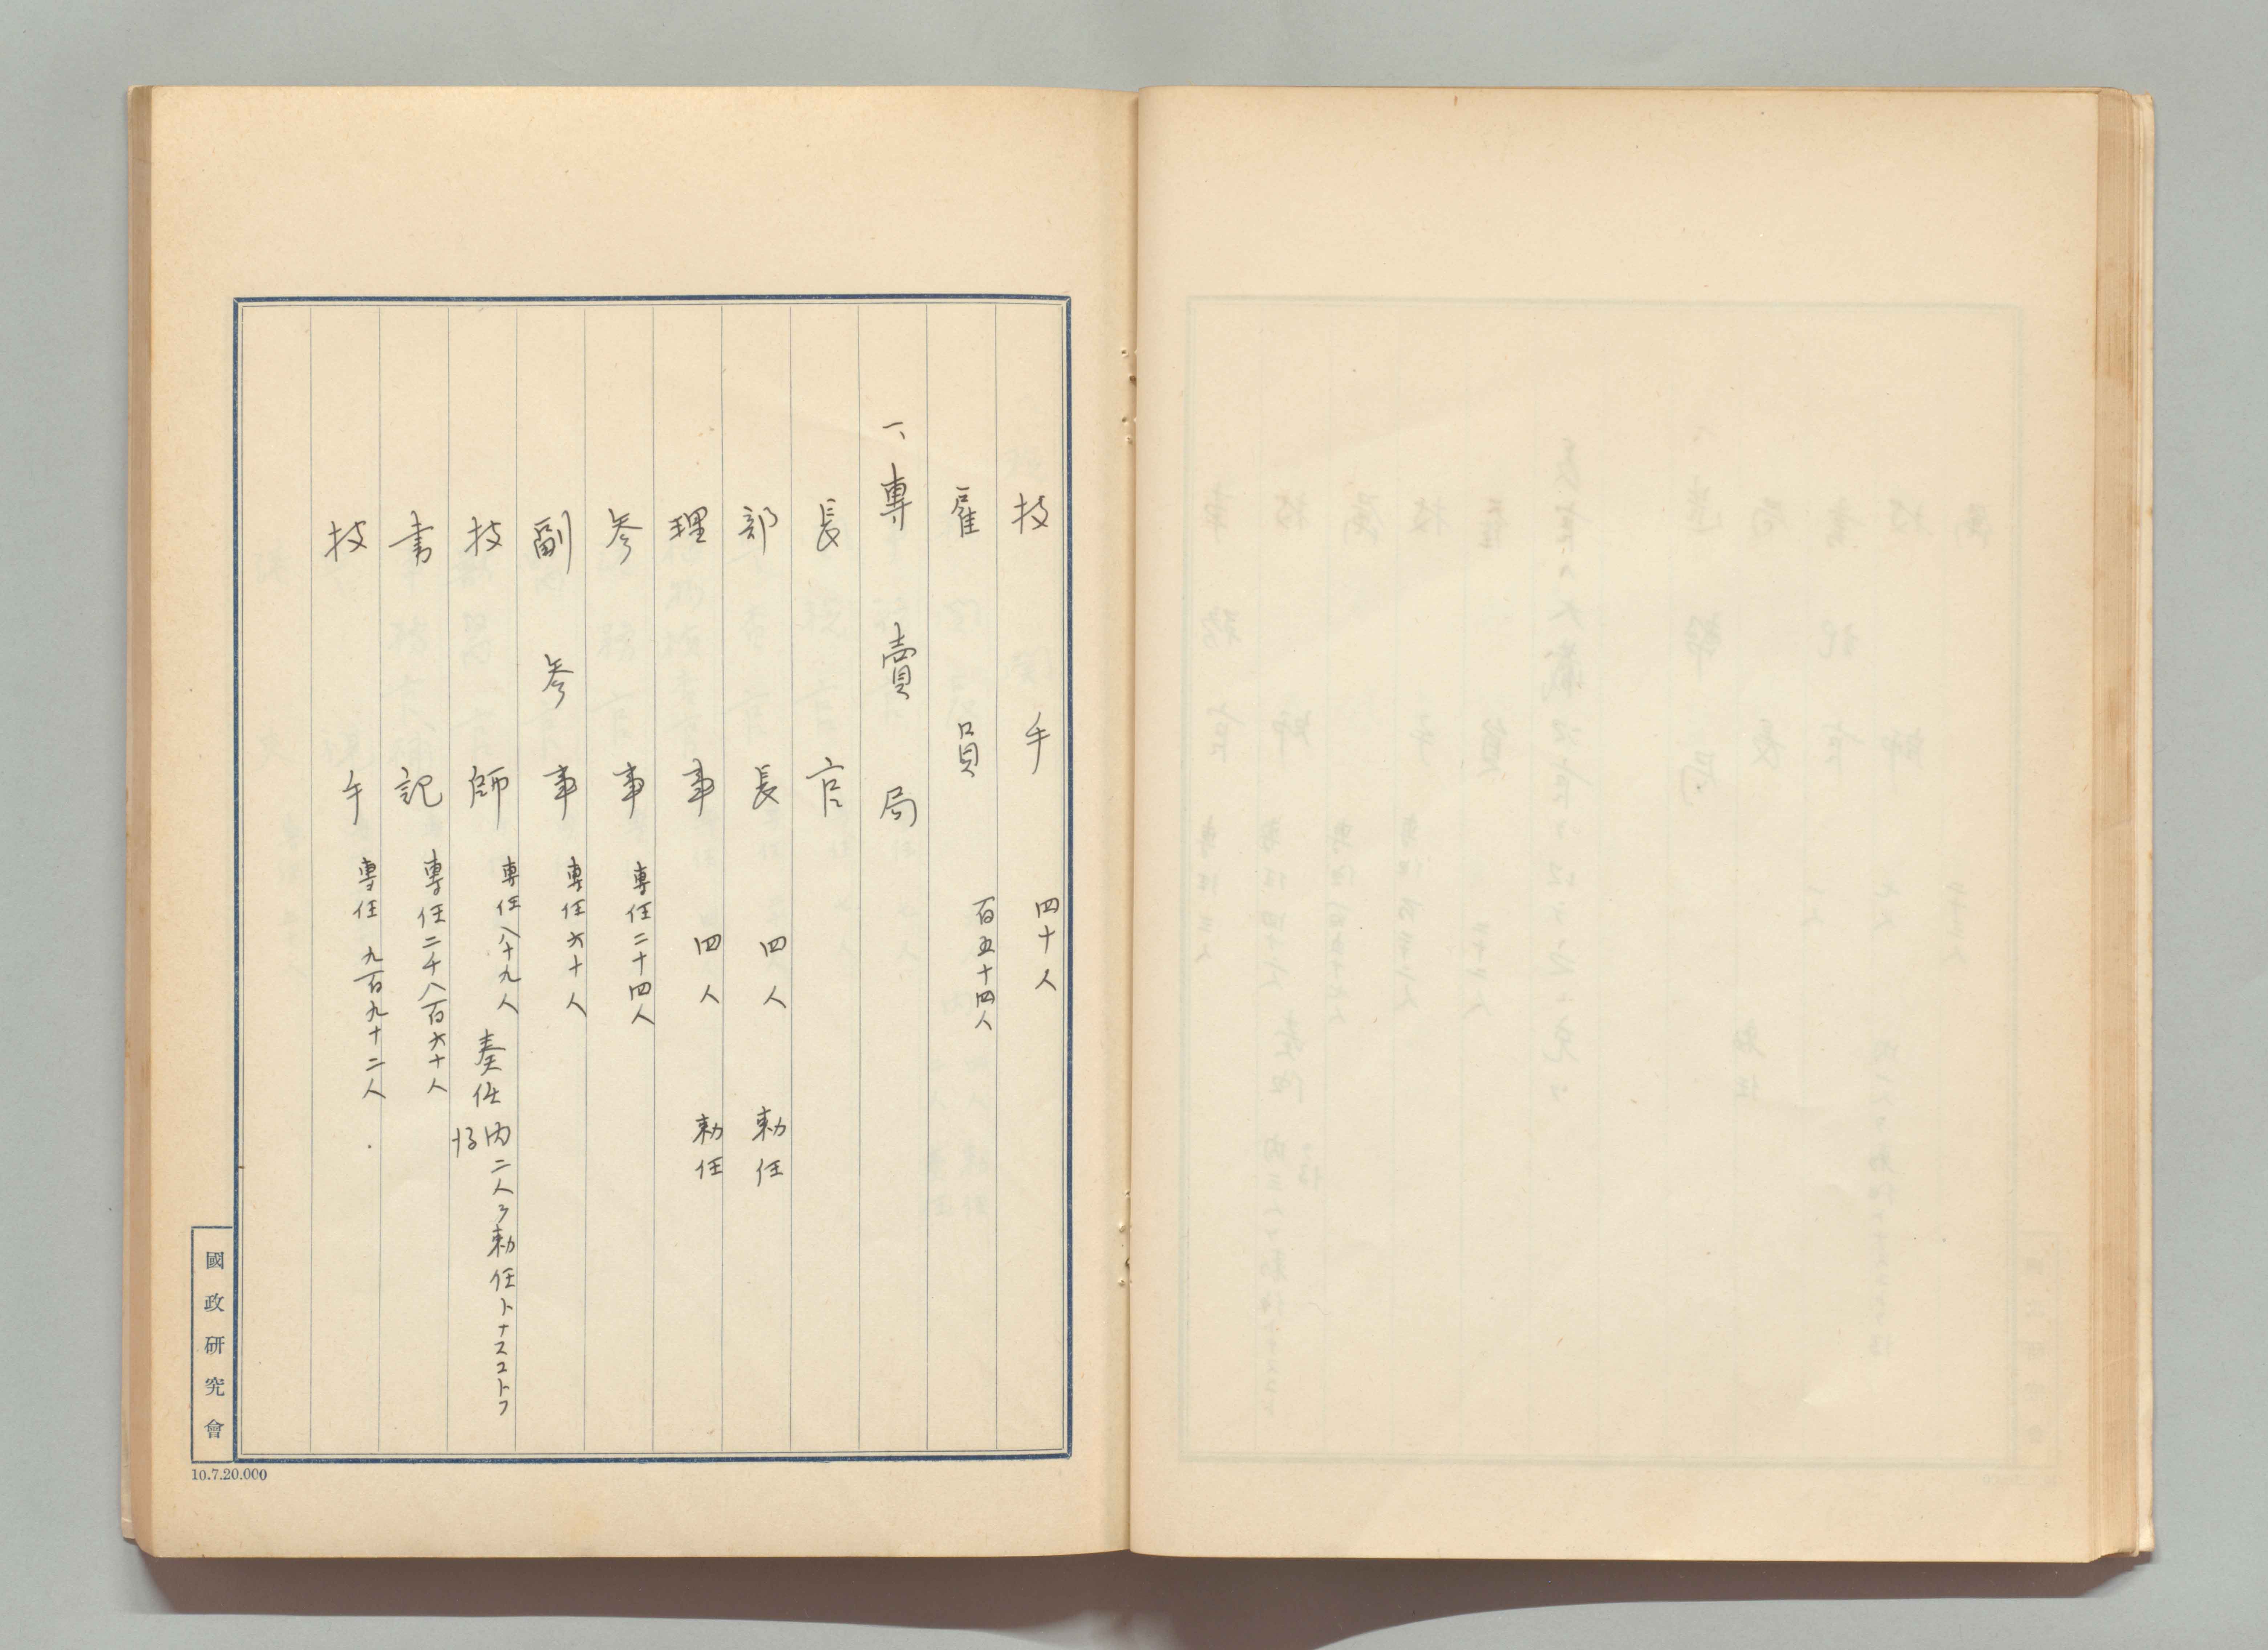 技手 四十人
雇員 百五十四人
一、專賣局
長官
部長 四人 勅任
理事 四人 勅任
参事 專任二十四人
副参事 專任六十人
技師 專任八十九人 奏任 内二人ヲ勅任トナスコトヲ得
書記 專任二千八百六十人
技手 專任 九百九十二人
國政研究會
10.7.20.000